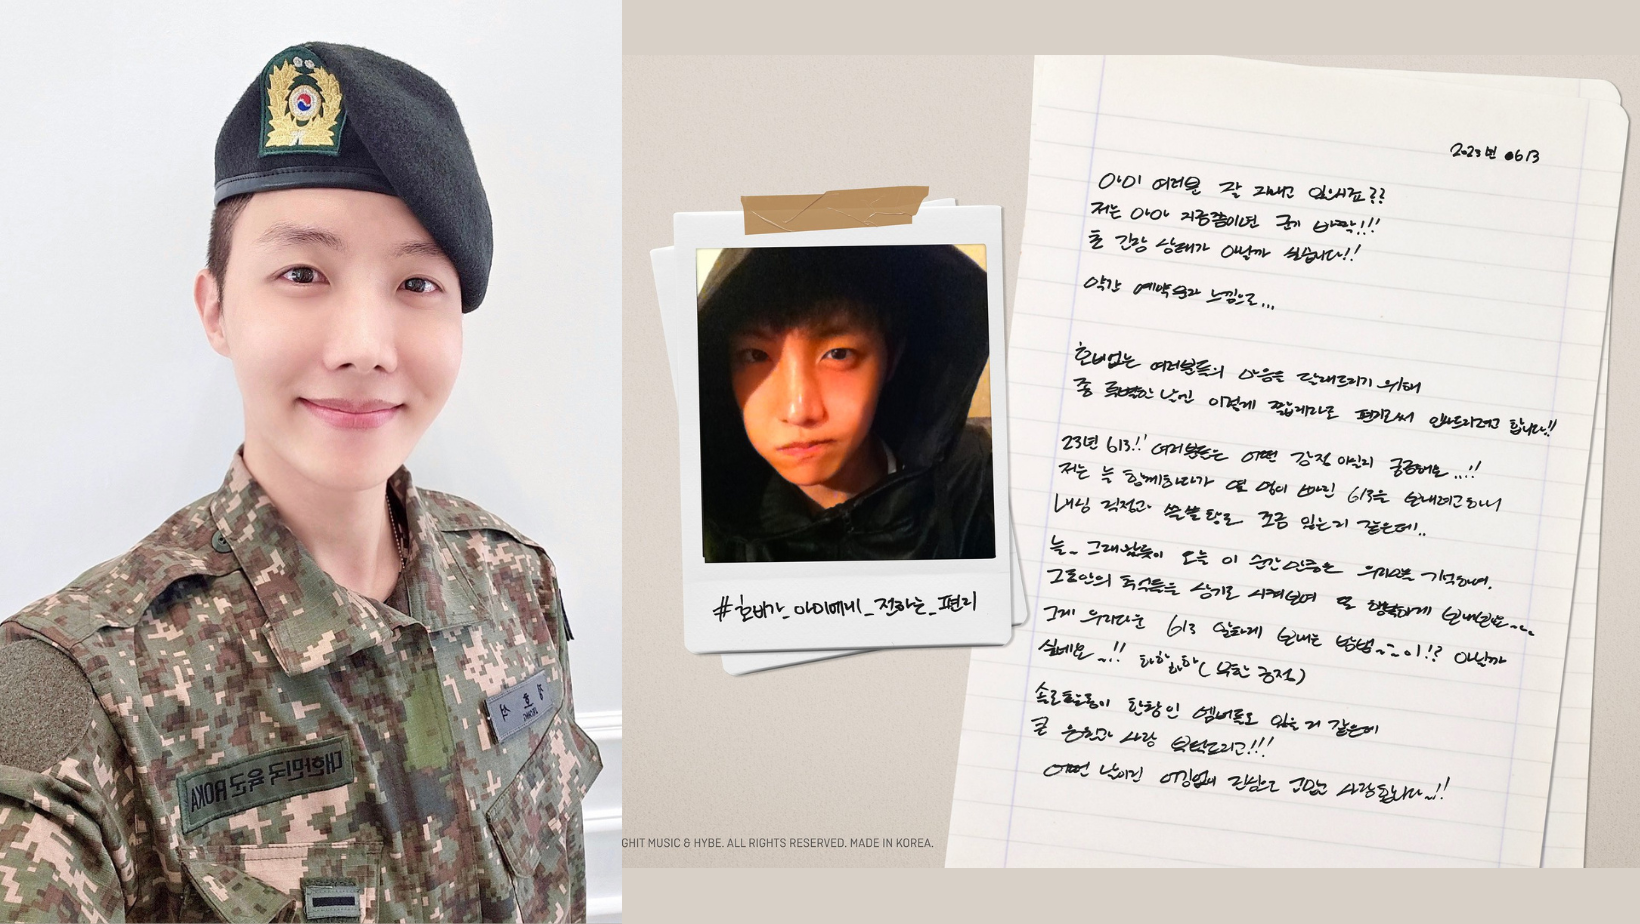 정호석
대한민국 육군 ROKA
#호비가_아미에게_전하는_편지
GHIT MUSIC & HYBE. ALL RIGHTS RESERVED. MADE IN KOREA.
2023년 0613
아미 여러분 잘 지내고 있으시죠??
저는 아마 지금쯤이면 군기 바짝!!!
초 긴장 상태가 아닐까 싶습니다!!
약간 예약 느낌으로...
호비없는 여러분들의 마음을 달래드리기 위해
좀 특별한 날엔 이렇게 짧게라도 편지로써 인사드리려고 합니다!!
23년 613!! 여러분들은 어떤 감정 이실지 궁금해요..!!
저는 늘 함께하다가 몸 없이 613을 보내려고하니
내심 걱정과 쓸쓸함도 조금 있는거 같은데..
늘.. 그래왔듯이 오늘 이 순간만큼은 우리을 기억하며,
그동안의 추억들을 상기도 시켜보며 또 행복하게 보내봐요~~
그게 우리다운 613 알차게 보내는 방법~~이!? 아닐까
싶네요..!! 하하하하(무한 긍정)
솔로활동이 한창인 멤버들도 있을거 같은데
큰 응원과 사랑 부탁드리고!!!
어떤 날이던 어김없이 진심으로 고맙고 사랑합니다..!!